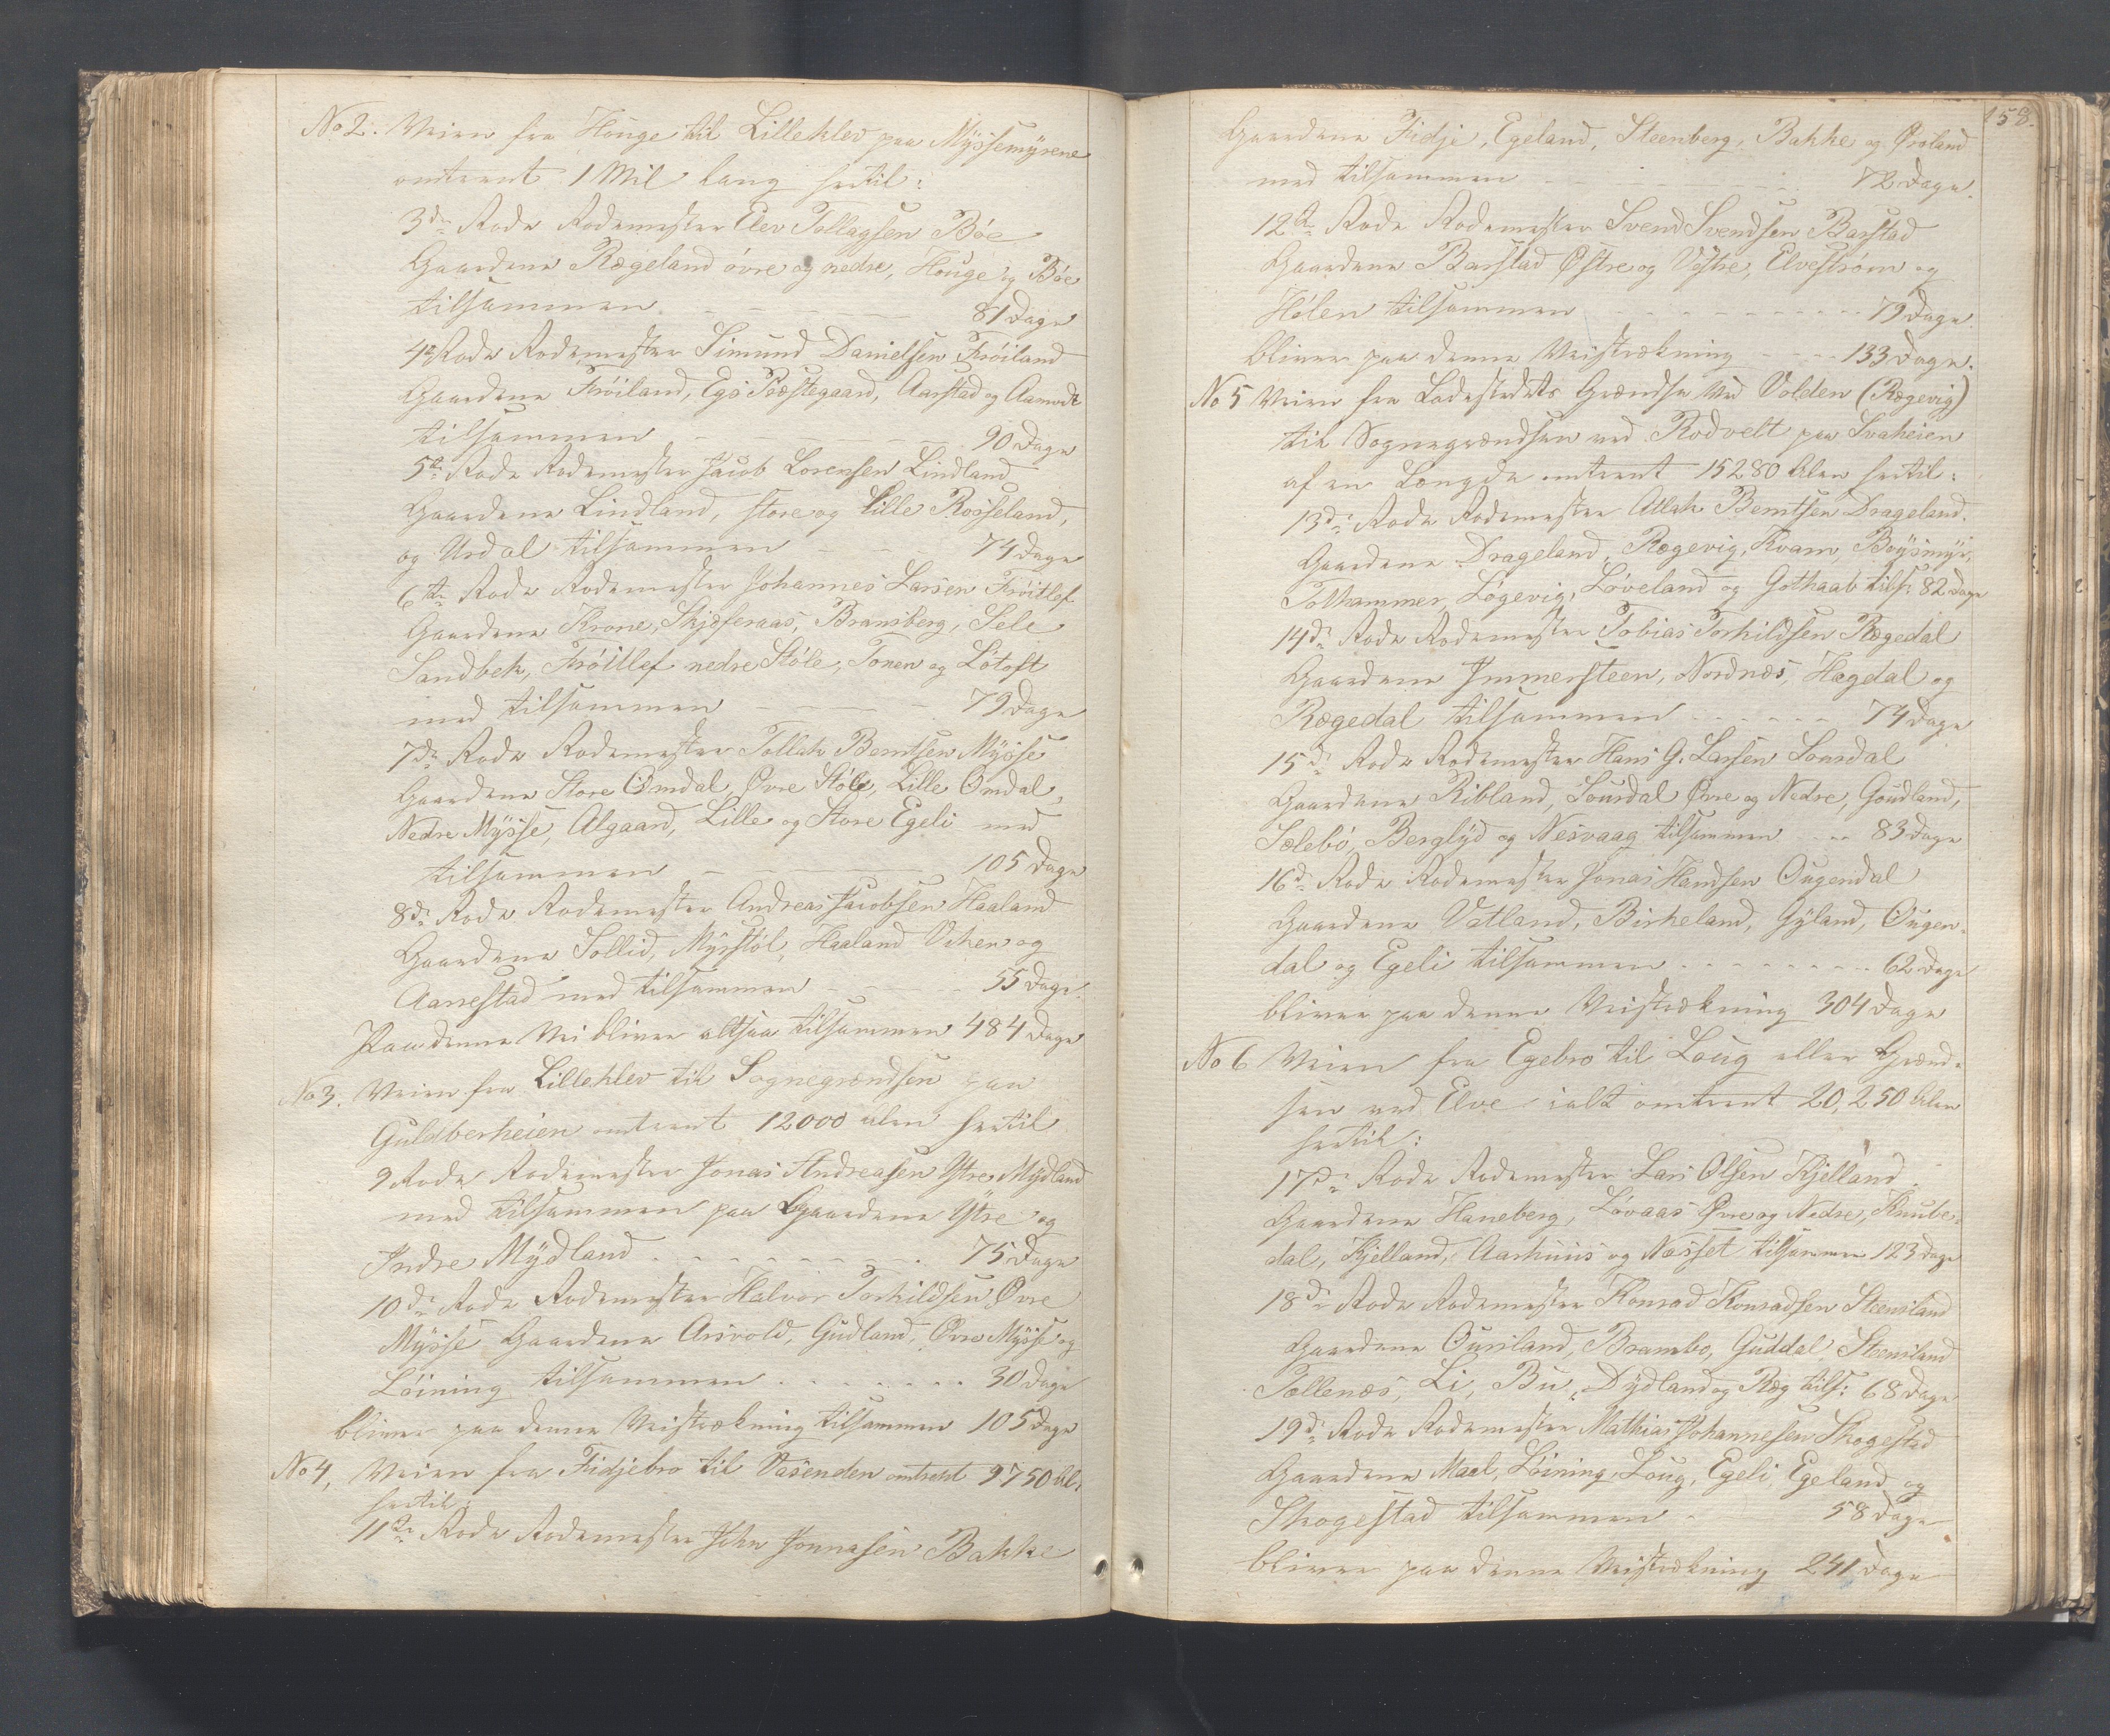 No 2. Veien fra Houge til Lilleklev paa Myssemyrene
omtrent 1 Mil lang hertil:
3die Rode Rodemester Elev Tollagsen Böe
Gaardene Rægeland övre og nedre, Houge og Böe
tilsammen 81 Dage
4de Rode Rodemester Simund Danielsen Fröiland
Gaardene Fröiland, Egs Præstegaard, Aarstad og Aamodt
tilsammen 90 Dage
5te Rode Rodemester Jacob Lorensen Lindland
Gaardene Lindland, store og lille Rosseland,
og Urdal tilsammen 74 Dage
6te Rode Rodemester Johannes Larsen Fröitlef
Gaardene Krone, Skjæferaas, Bransberg, Sele
Sandbek, Fröitlef nedre Stöle, Tonen og Lötoft
med tilsammen 79 Dage
7de Rode Rodemester Tollak Berntsen Mysse
Gaardene Store Omdal, Øvre Stöle, Lille Omdal,
Nedre Mysse, Algaard, Lille og Store Egeli med
tilsammen 105 Dage
8de Rode Rodemester Andreas Jacobsen Haaland
Gaardene Sollid, Myrstöl, Haaland Viken og
Aarrestad med tilsammen 55 Dage.
Paa denne Vei bliver altsaa tilsammen 484 Dage
No 3. Veien fra Lilleklev til Sognegrændsen paa
Guldberheien omtrent 12000 alen hertil
9 Rode Rodemester Jonas Andreasen Ytre Mydland
med tilsammen paa Gaardene Ytre og
Indre Mydland 75 Dage
10de Rode Rodemester Halvor Torkildsen Øvre
Mysse Gaardene Arsvold, Gudland, Øvre Mysse og
Löining tilsammen 30 Dage
bliver paa denne Veistrækning tilsammen 105 Dage
No 4, Veien fra Fidjebro til Vasenden omtrent 9750 Al.
hertil:
11te Rode Rodemester John Jonnasen Bakke
158.
Gaardene Fidje, Egeland, Steenberg, Bakke og Øroland
med tilsammen 72 Dage.
12te Rode Rodemester Svend Svendsen Barstad
Gaardene Barstad Østre og Vestre, Elveström og
Hölen tilsammen 79 Dage
bliver paa denne Veistrækning 133 Dage.
No 5 Veien fra Ladestedets Grændse ved Volden (Rægevig)
til Sognegrændsen ved Rodvelt paa Svaheien
af en Længde omtrent 15280 Alen hertil:
13de Rode Rodemester Atlak Berntsen Drageland.
Gaardene Drageland, Rægevig, Kvam, Böysmyr,
Tolhammer, Lögevig, Löveland og Gothaab tils: 82 Dage
14de Rode Rodemester Tobias Torkildsen Rægedal
Gaardene Immersteen, Nordnæs, Hægdal og
Rægedal tilsammen 74 Dage
15de Rode Rodemester Hans G. Larsen Sourdal
Gaardene Ribland, Sourdal Øvre og Nedre, Goudland,
Sælebö, Berglyd og Nesvaag tilsammen 83 Dage
16de Rode Rodemester Jonas Handsen Ougendal
Gaardene Vatland, Birkeland, Gyland, Ougen-
dal og Egeli tilsammen 62 Dage
bliver paa denne Veistrækning 304 Dage
No 6 Veien fra Egebro til Loug eller Grænd-
sen ved Elve ialt omtrent 20,250 Alen
hertil:
17de Rode Rodemester Lars Olsen Kjelland
Gaardene Haneberg, Lövaas Øvre og Nedre, Knube-
dal, Kjelland, Aarhuus og Næsset tilsammen 123 Dage
18de Rode Rodemester Konrad Konradsen Steensland
Gaardene Ousland, Brambo, Guddal, Steensland
Tællenæs, Li, Bu, Dydland og Ræg tils: 68 Dage
19de Rode Rodemester Mathias Johannesen Skogestad
Gaardene Mæl, Löining, Loug, Egeli, Egeland og
Skogestad tilsammen 58 Dage
bliver paa denne Veistrækning 241 Dage